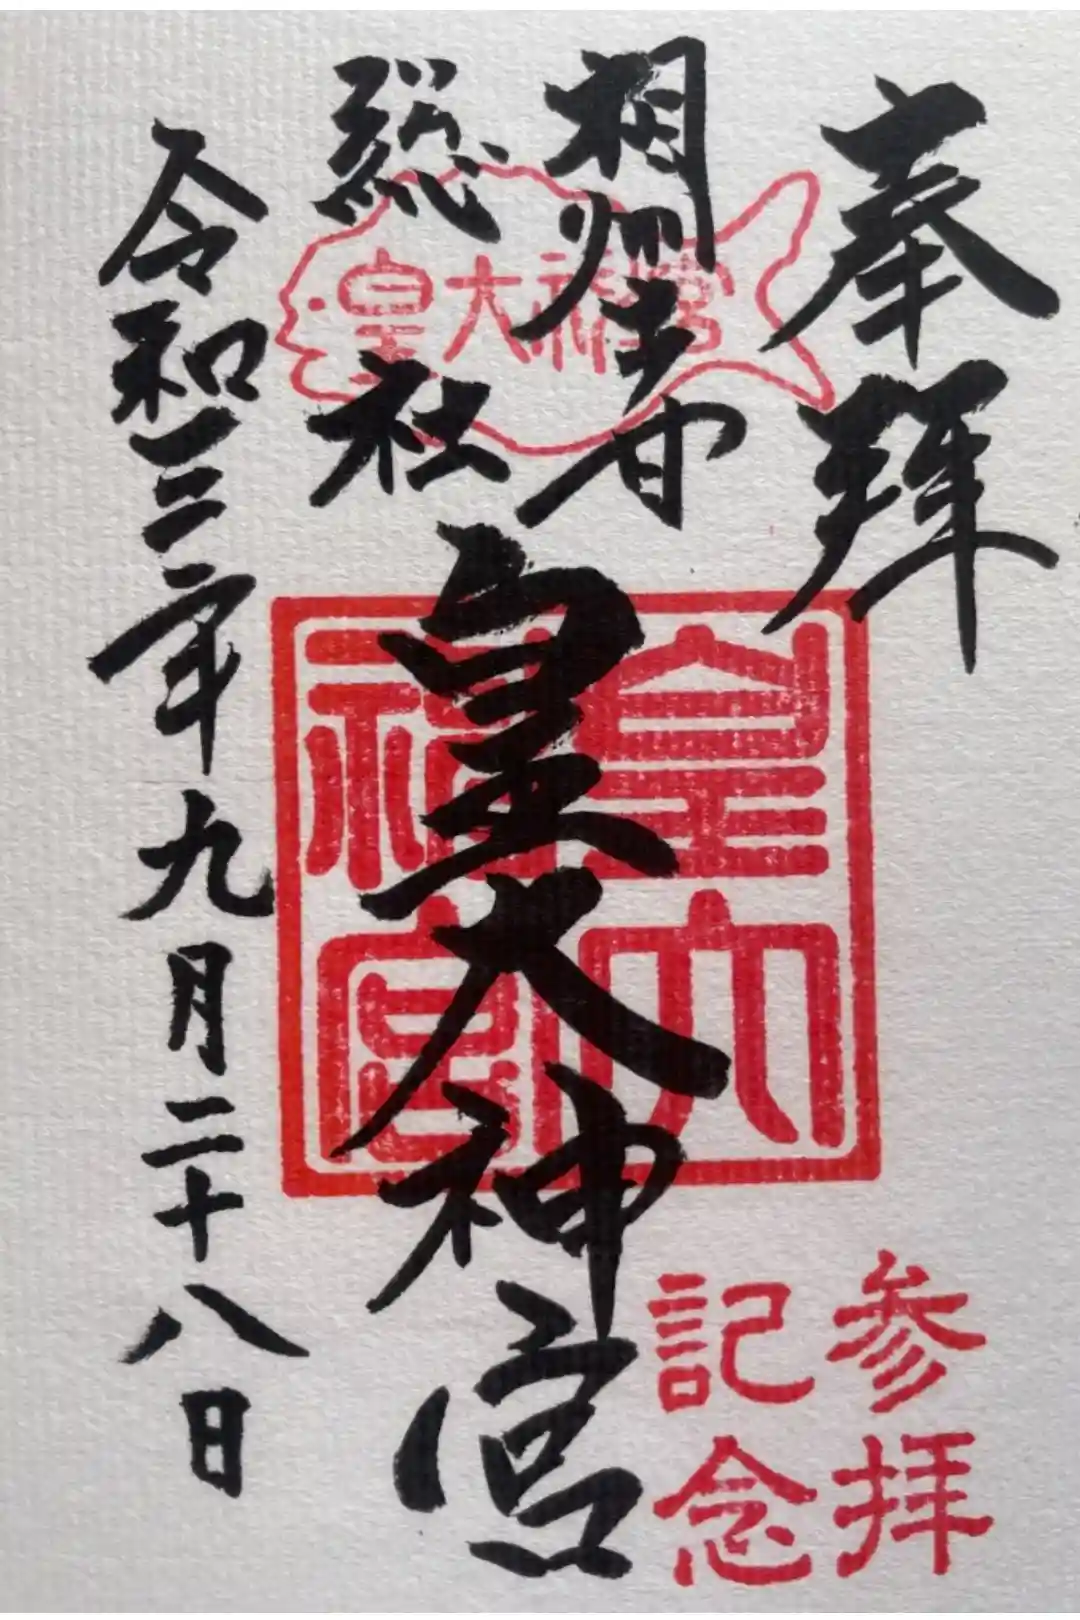 奉拝
相州土甘
総社
皇大神宮
令和三年九月二十八日
皇大神宮
皇大
神宮
参拝
記念